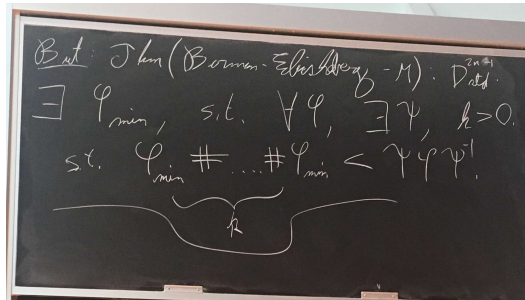 But: Thm (Borman-Eliashberg-M): D^{2n+1}_{std}.
∃ φ_min, s.t. ∀φ, ∃ψ, k>0.
s.t. φ_min # .... # φ_min < ψφψ^{-1}.
k